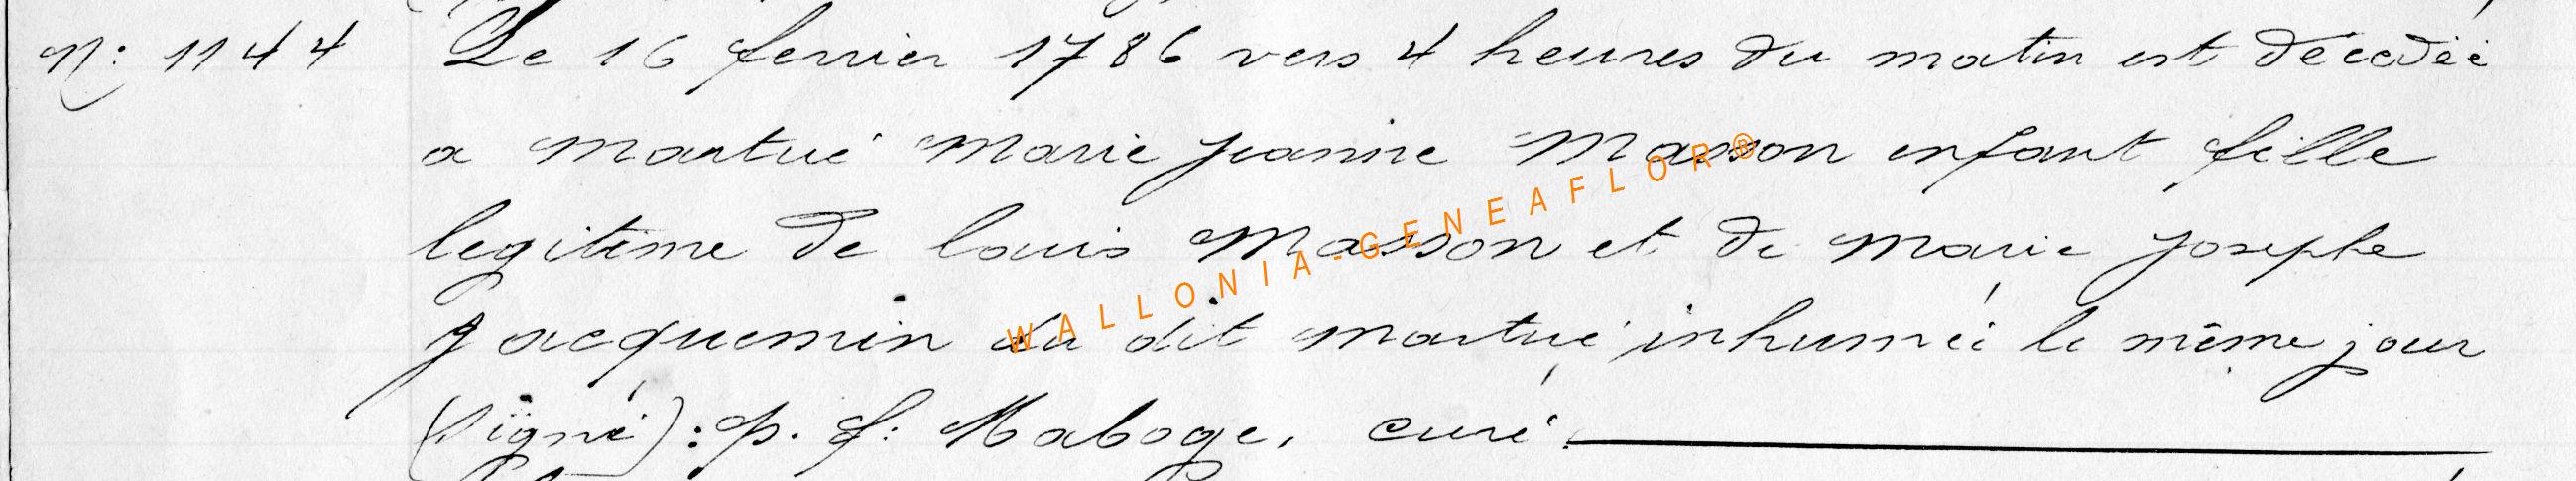 N: 1144 Le 16 fevrier 1786 vers 4 heures du matin est décedée
a Martué Marie Jeanne Masson enfant fille
legitime de louis Masson et de Marie Josephe
Jacquemin du dit Martué inhumée le même jour
(Signé): p. f: Maboge, curé.
WALLONIA-GENEAFLOR®